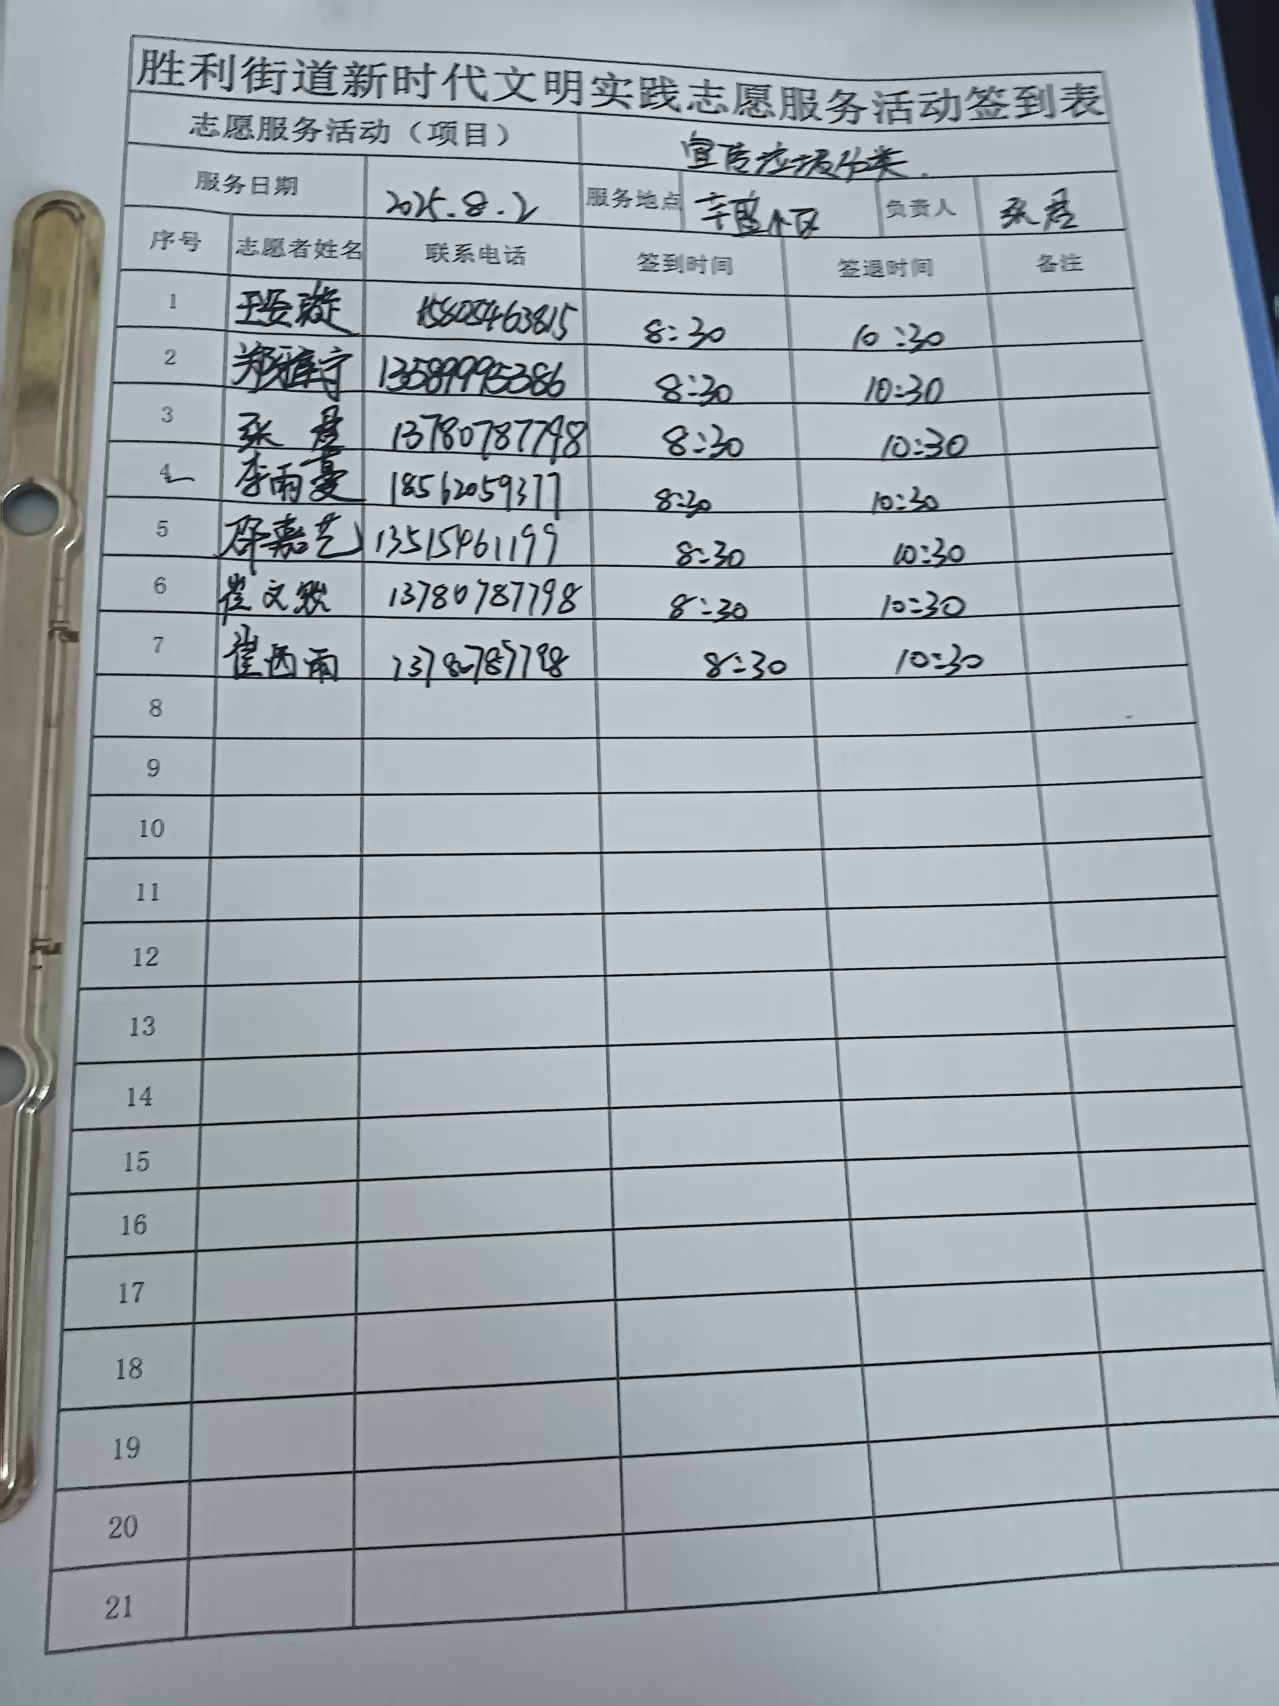 胜利街道新时代文明实践志愿服务活动签到表
志愿服务活动（项目） 宣传垃圾分类.
服务日期 2025.8.2 服务地点 小区 负责人 张
序号 志愿者姓名 联系电话 签到时间 签退时间 备注
1 王 15805463815 8:30 10:30
2 郑雅宁 13589995386 8:30 10:30
3 张 13780787798 8:30 10:30
4 李雨蔓 18562059377 8:30 10:30
5 邵嘉艺 13515461199 8:30 10:30
6 崔文 13780787798 8:30 10:30
7 崔雨 13780787798 8:30 10:30
8
9
10
11
12
13
14
15
16
17
18
19
20
21